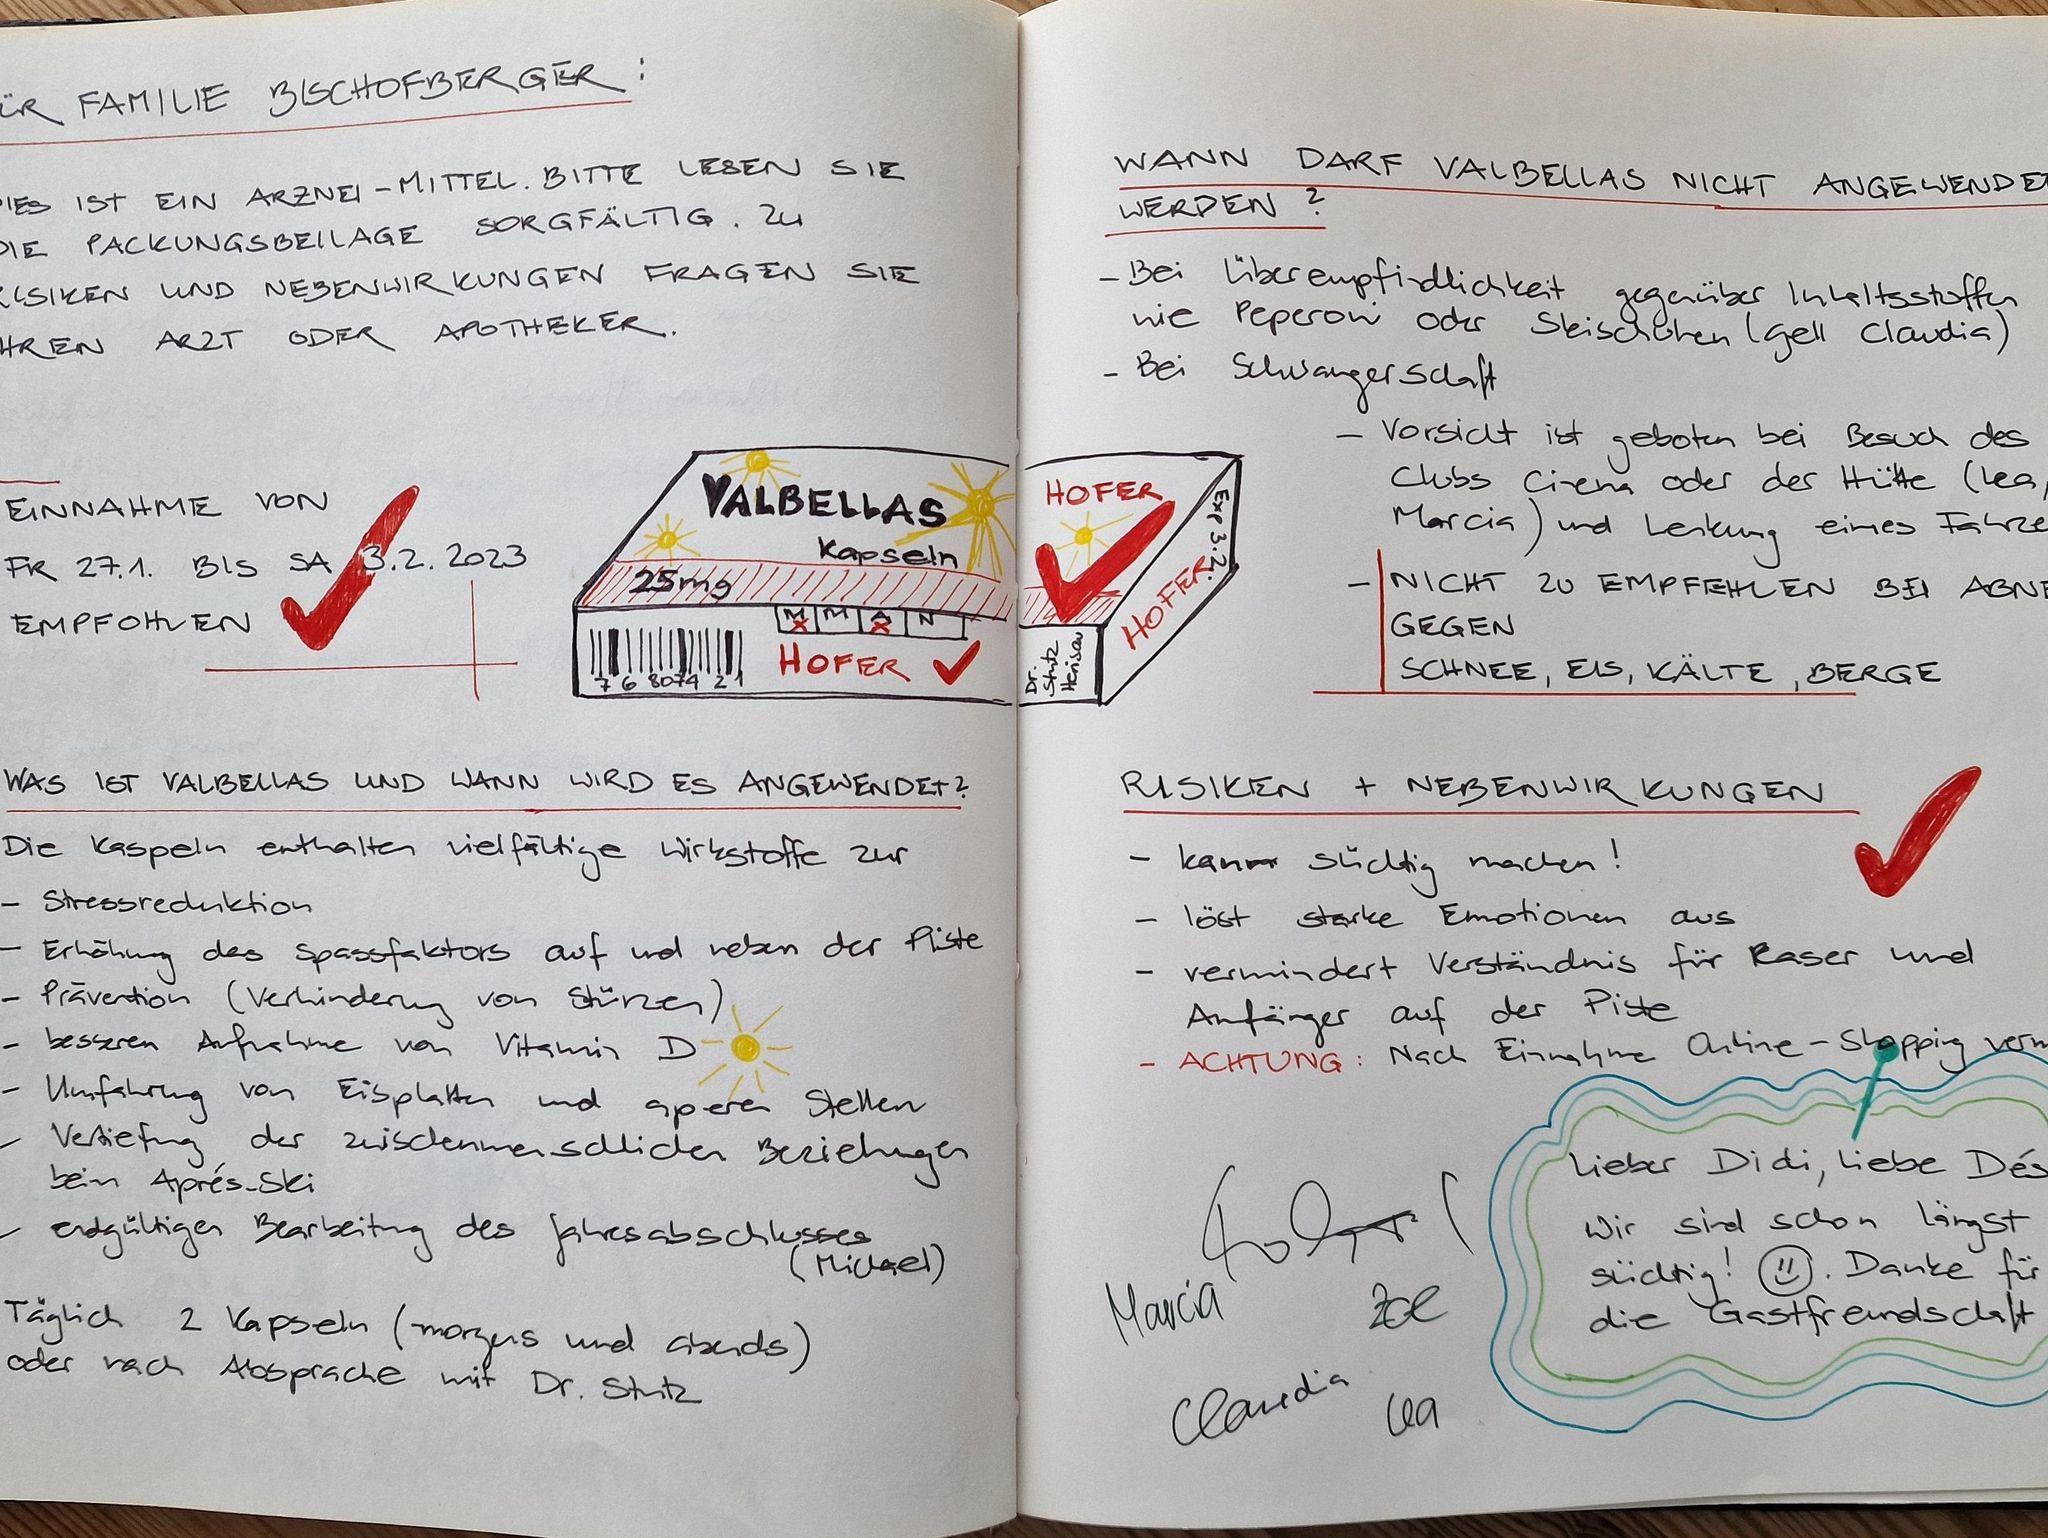 ÜR FAMILIE BISCHOFBERGER:
DIES IST EIN ARZNEI-MITTEL. BITTE LESEN SIE
DIE PACKUNGSBEILAGE SORGFÄLTIG. ZU
RISIKEN UND NEBENWIRKUNGEN FRAGEN SIE
IHREN ARZT ODER APOTHEKER.
EINNAHME VON
FR 27.1. BIS SA 3.2.2023
EMPFOHLEN
VALBELLAS
Kapseln
25mg
M M A N
7 6 8074 2 1
HOFER
WAS IST VALBELLAS UND WANN WIRD ES ANGEWENDET?
Die Kaspeln enthalten vielfältige Wirkstoffe zur
- Stressreduktion
- Erhöhung des Spassfaktors auf und neben der Piste
- Prävention (Verhinderung von Stürzen)
- besseren Aufnahme von Vitamin D
- Umfahrung von Eisplatten und aperen Stellen
- Vertiefung der zwischenmenschlichen Beziehungen
beim Après-Ski
- endgültigen Bearbeitung des Jahresabschlusses
(Michael)
Täglich 2 Kapseln (morgens und abends)
oder nach Absprache mit Dr. Stutz
WANN DARF VALBELLAS NICHT ANGEWENDE
WERDEN?
- Bei Überempfindlichkeit gegenüber Inhaltsstoffen
wie Peperoni oder Skischuhen (gell Claudia)
- Bei Schwangerschaft
- Vorsicht ist geboten bei Besuch des
Clubs Cinema oder der Hütte (Lea,
Marcia) und Lenkung eines Fahrze
- NICHT ZU EMPFEHLEN BEI ABNE
GEGEN
SCHNEE, EIS, KÄLTE, BERGE
HOFER
Exp 3.2.
HOFER
Dr. Stutz Herisau
RISIKEN + NEBENWIRKUNGEN
- kann süchtig machen!
- löst starke Emotionen aus
- vermindert Verständnis für Raser und
Anfänger auf der Piste
- ACHTUNG: Nach Einnahme Online-Shopping verm
Lieber Didi, liebe Dés
Wir sind schon längst
süchtig! . Danke für
die Gastfreundschaft
Marcia
Zoe
Claudia
Lea